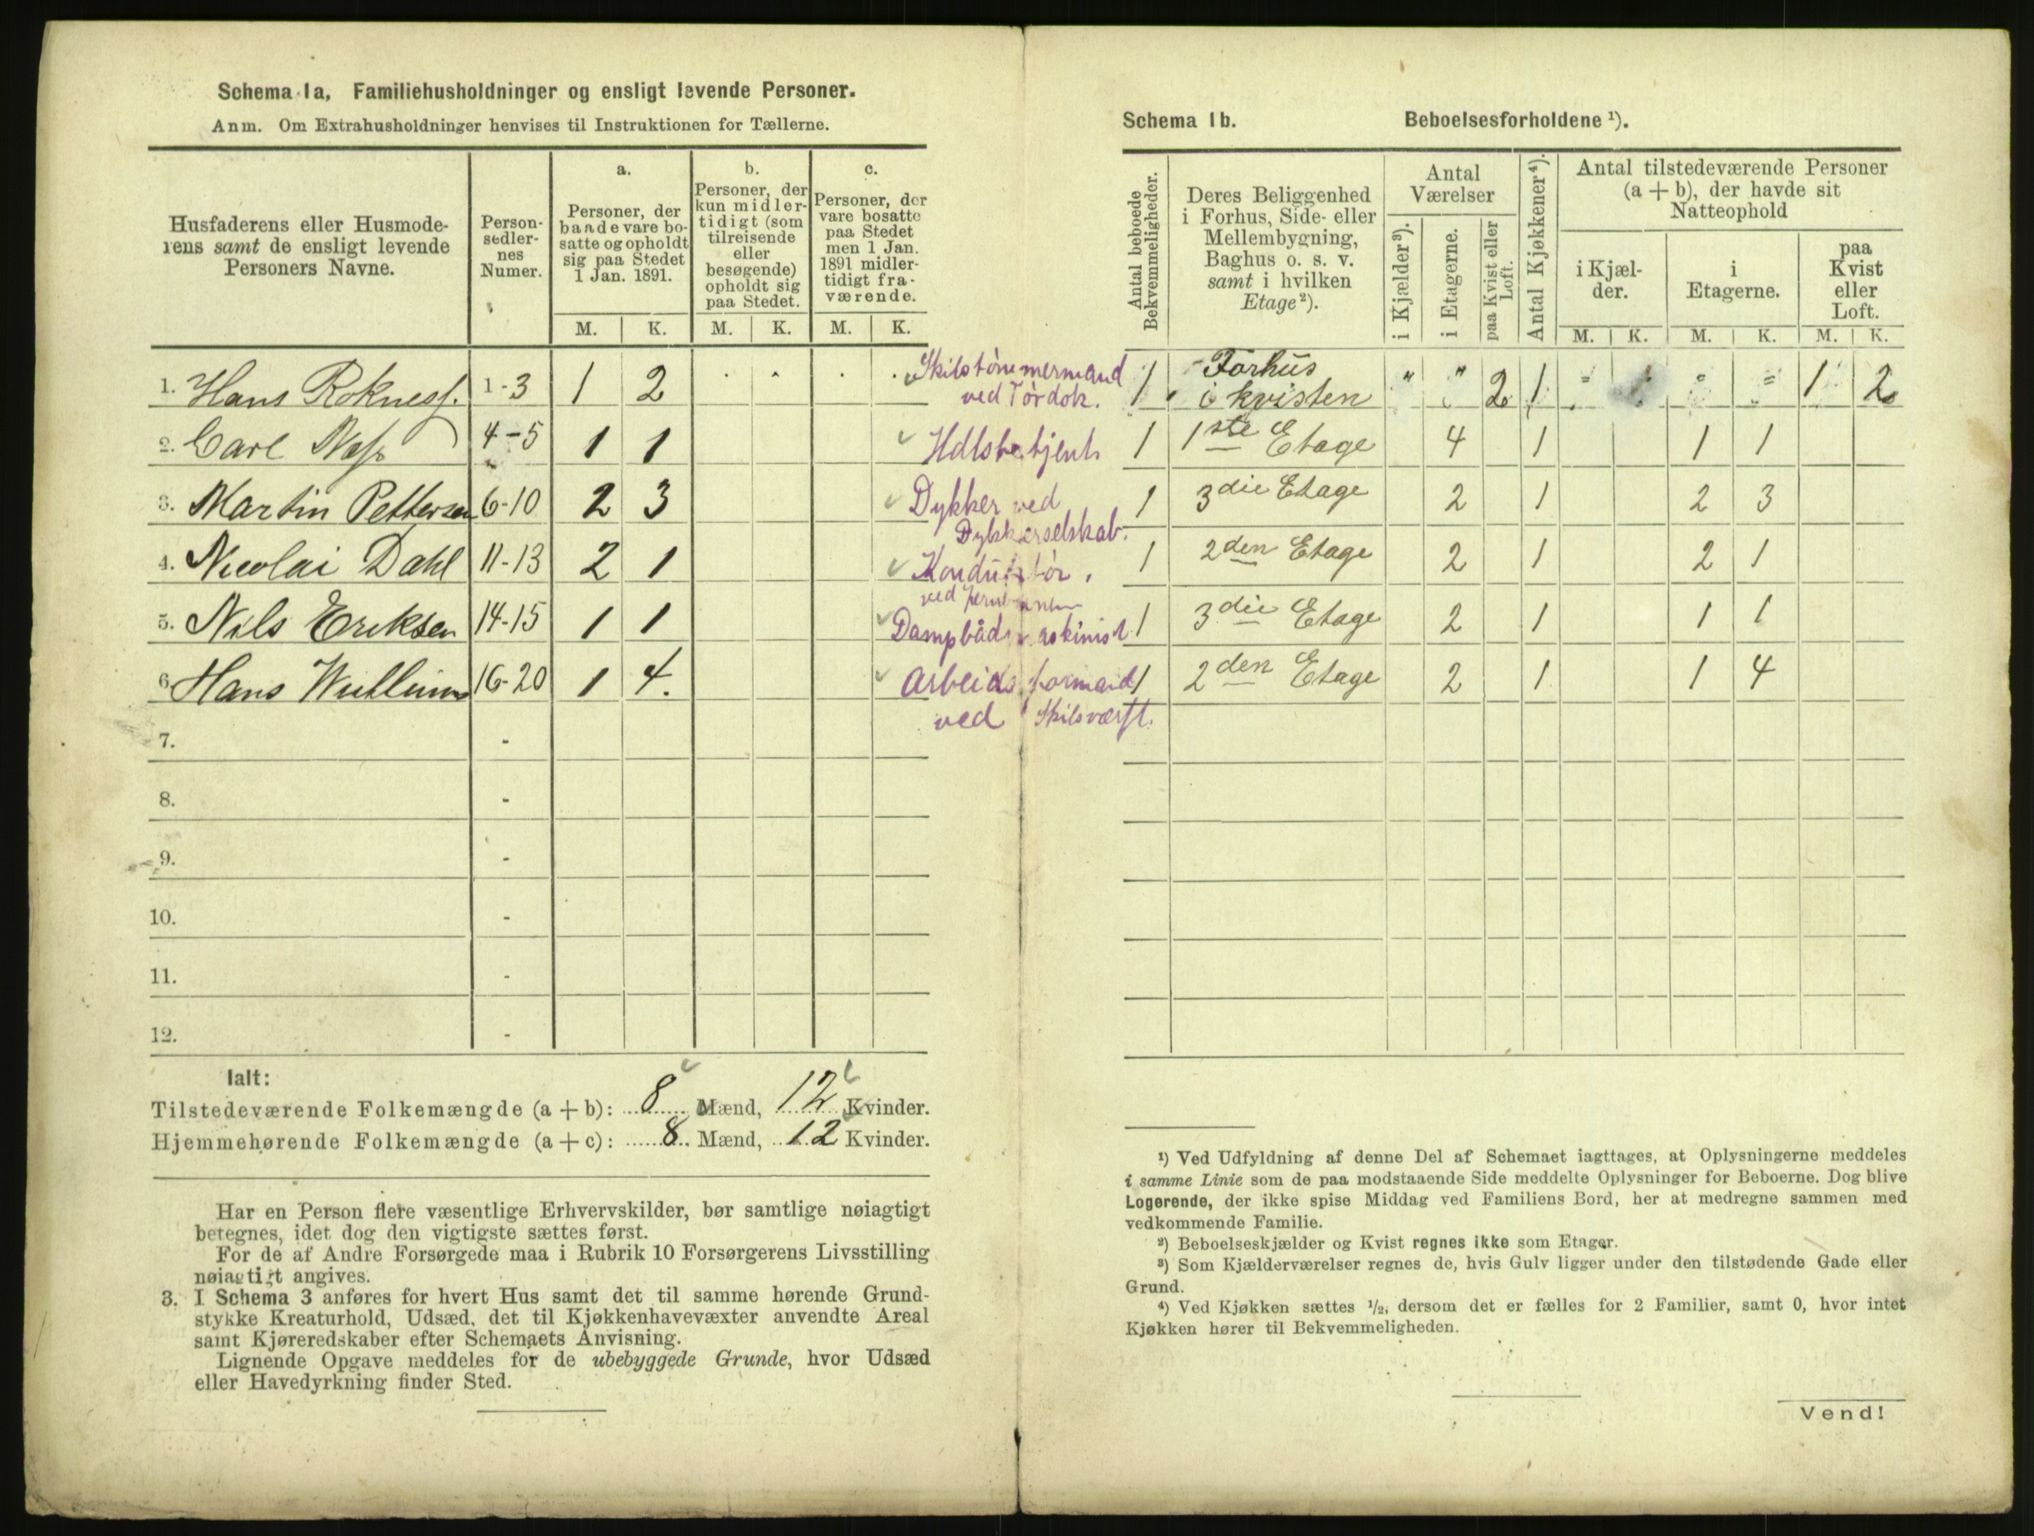 Schema 1a, Familiehusholdninger og ensligt levende Personer.
Anm. Om Extrahusholdninger henvises til Instruktionen for Tællerne.
Husfaderens eller Husmoderens samt de ensligt levende Personers Navne.
Person-sedler-nes Numer.
a.
Personer, der baade vare bosatte og opholdt sig paa Stedet 1 Jan. 1891.
b.
Personer, der kun midlertidigt (som tilreisende eller besøgende) opholdt sig paa Stedet.
c.
Personer, der vare bosatte paa Stedet men 1 Jan. 1891 midlertidigt fraværende.
M. K. M. K. M. K.
1. Hans Rokness. 1-3 1 2 Skilstømmermand ved Tørdok.
2. Carl Næss 4-5 1 1 Hdlsbetjent
3. Martin Pettersen 6-10 2 3 Dykker ved Dykkerselskab.
4. Nicolai Dahl 11-13 2 1 Konduktør ved Jernbanen
5. Nils Eriksen 14-15 1 1 Dampbådmaskinist
6. Hans Wullum 16-20 1 4. Arbeidsformand ved Skilsværft.
7. -
8. -
9. -
10. -
11. -
12. -
Ialt:
Tilstedeværende Folkemængde (a + b): 8 Mænd, 12 Kvinder.
Hjemmehørende Folkemængde (a + c): 8 Mænd, 12 Kvinder.
Har en Person flere væsentlige Erhvervskilder, bør samtlige nøiagtigt
betegnes, idet dog den vigtigste sættes først.
For de af Andre Forsørgede maa i Rubrik 10 Forsørgerens Livsstilling
nøiagtigt angives.
3. I Schema 3 anføres for hvert Hus samt det til samme hørende Grund-
stykke Kreaturhold, Udsæd, det til Kjøkkenhavevæxter anvendte Areal
samt Kjøreredskaber efter Schemaets Anvisning.
Lignende Opgave meddeles for de ubebyggede Grunde, hvor Udsæd
eller Havedyrkning finder Sted.
Schema 1b. Beboelsesforholdene ¹).
Antal beboede Bekvemmeligheder.
Deres Beliggenhed i Forhus, Side- eller Mellembygning, Baghus o. s. v. samt i hvilken Etage ²).
Antal Værelser
i Kjælder ³).
i Etagerne.
paa Kvist eller Loft.
Antal Kjøkkener ⁴).
Antal tilstedeværende Personer (a + b), der havde sit Natteophold
i Kjælder.
i Etagerne.
paa Kvist eller Loft.
M. K. M. K. M. K.
1 Forhus i kvisten " " 2 1 " " = 1 2
1 1ste Etage 4 1 1 1
1 3die Etage 2 1 2 3
1 2den Etage 2 1 2 1
1 3die Etage 2 1 1 1
1 2den Etage 2 1 1 4
¹) Ved Udfyldning af denne Del af Schemaet iagttages, at Oplysningerne meddeles
i samme Linie som de paa modstaaende Side meddelte Oplysninger for Beboerne. Dog blive
Logerende, der ikke spise Middag ved Familiens Bord, her at medregne sammen med
vedkommende Familie.
²) Beboelseskjælder og Kvist regnes ikke som Etager.
³) Som Kjælderværelser regnes de, hvis Gulv ligger under den tilstødende Gade eller
Grund.
⁴) Ved Kjøkken sættes ½, dersom det er fælles for 2 Familier, samt 0, hvor intet
Kjøkken hører til Bekvemmeligheden.
Vend!